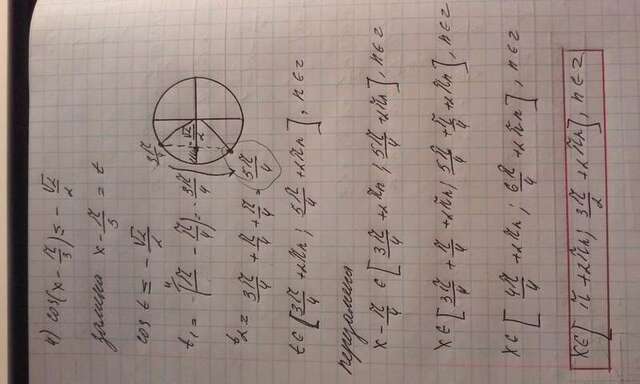 4) cos(x - π/3) ≤ - √2/2
замена x - π/5 = t
cos t ≤ - √2/2
t₁ = -(π - π/4) = - 3π/4
3π/4
- √2/2
t₂ = 3π/4 + π/4 + π/4 = 5π/4
t ∈ [3π/4 + 2πn ; 5π/4 + 2πn], n ∈ z
перезамена
x - π/4 ∈ [3π/4 + 2πn ; 5π/4 + 2πn], n ∈ z
x ∈ [3π/4 + π/4 + 2πn ; 5π/4 + π/4 + 2πn], n ∈ z
x ∈ [4π/4 + 2πn ; 6π/4 + 2πn], n ∈ z
x ∈ [π + 2πn ; 3π/2 + 2πn], n ∈ z